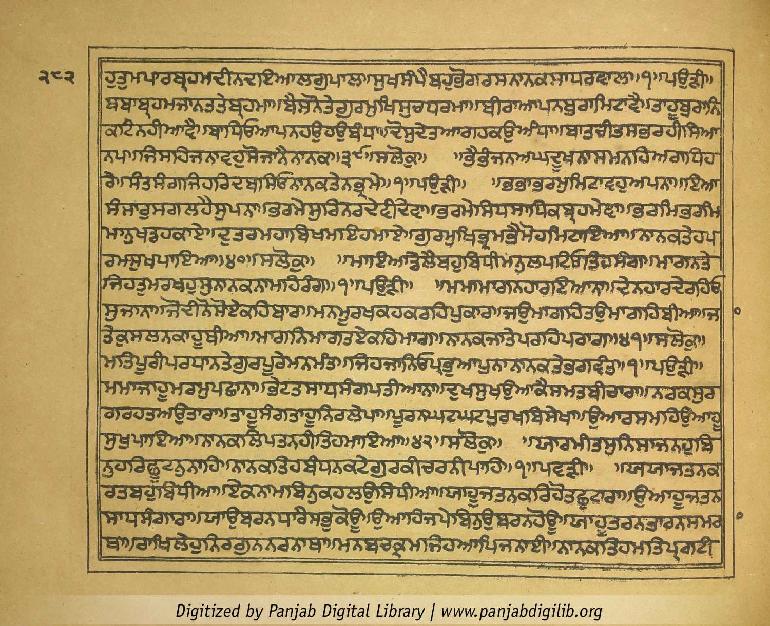 ੨੯੨
ਹੁਤੁਮਪਾਰਬ੍ਰਹਮਦੀਨਦਾਇਆਲਗੁਪਾਲਾ॥ਸੁਖਸੰਪੈਬਹੁਭੋਗਰਸਨਾਨਕਸਾਧਰਵਾਲਾ॥੧॥ਪਉੜੀ॥
ਬਬਾਬ੍ਰਹਮਜਾਨਤਤੇਬ੍ਰਹਮਾ॥ਬੈਸਨੋਤੇਗੁਰਮੁਖਿਸੁਚਧਰਮਾ॥ਬੀਰਾਆਪਨਬੁਰਾਮਿਟਾਵੈ॥ਤਾਹੂਬੁਰਾਨਿ
ਕਟਿਨਹੀਆਵੈ॥ਬਾਧਿਓਆਪਨਹਉਹਉਬੰਧਾ॥ਦੋਸੁਦੇਤਆਗਹਕਉਅੰਧਾ॥ਬਾਤਚੀਤਸਭਰਹੀਸਿਆ
ਨਪ॥ਜਿਸਹਿਜਨਾਵਹੁਸੋਜਾਨੈਨਾਨਕ॥੩੯॥ਸਲੋਕੁ॥ ਭੈਭੰਜਨਅਘਦੂਖਨਾਸਮਨਹਿਅਰਾਧਿਹ
ਰੇ॥ਸੰਤਸੰਗਜਿਹਰਿਦਬਸਿਓਨਾਨਕਤੇਨਭ੍ਰਮੇ॥੧॥ਪਉੜੀ॥ ਭਭਾਭਰਮੁਮਿਟਾਵਹੁਅਪਨਾ॥ਇਆ
ਸੰਸਾਰੁਸਗਲਹੈਸੁਪਨਾ॥ਭਰਮੇਸੁਰਿਨਰਦੇਵੀਦੇਵਾ॥ਭਰਮੇਸਿਧਸਾਧਿਕਬ੍ਰਹਮੇਵਾ॥ਭਰਮਿਭਰਮਿ
ਮਾਨੁਖਡਹਕਾਏ॥ਦੁਤਰਮਹਾਬਿਖਮਇਹਮਾਏ॥ਗੁਰਮੁਖਿਭ੍ਰਮਭੈਮੋਹਮਿਟਾਇਆ॥ਨਾਨਕਤੇਹਪ
ਰਮਸੁਖਪਾਇਆ॥੪੦॥ਸਲੋਕੁ॥ ਮਾਇਆਡੋਲੈਬਹੁਬਿਧੀਮਨੁਲਪਟਿਓਤਿਹਸੰਗ॥ਮਾਗਨਤੇ
ਜਿਹਤੁਮਰਖਹੁਸੁਨਾਨਕਨਾਮਹਿਰੰਗ॥੧॥ਪਉੜੀ॥ ਮਮਾਮਾਗਨਹਾਰਇਆਨਾ॥ਦੇਨਹਾਰਦੇਰਹਿਓ
ਸੁਜਾਨਾ॥ਜੋਦੀਨੋਸੋਏਕਹਿਬਾਰ॥ਮਨਮੂਰਖਕਹਕਰਹਿਪੁਕਾਰ॥ਜਉਮਾਗਹਿਤਉਮਾਗਹਿਬੀਆ॥ਜ
ਤੇਕੁਸਲਨਕਾਹੂਥੀਆ॥ਮਾਗਨਿਮਾਗਤਏਕਹਿਮਾਗ॥ਨਾਨਕਜਾਤੇਪਰਹਿਪਰਾਗ॥੪੧॥ਸਲੋਕੁ॥
ਮਤਿਪੂਰੀਪਰਧਾਨਤੇਗੁਰਪੂਰੇਮਨਮੰਤ॥ਜਿਹਜਾਨਿਓਪ੍ਰਭੁਆਪੁਨਾਨਾਨਕਤੇਭਗਵੰਤ॥੧॥ਪਉੜੀ॥
ਮਮਾਜਾਹੂਮਰਮੁਪਛਾਨਾ॥ਭੇਟਤਸਾਧਸੰਗਪਤੀਆਨਾ॥ਦੁਖਸੁਖਉਆਕੈਸਮਤਬੀਚਾਰਾ॥ਨਰਕਸੁਰ
ਗਰਹਤਅਉਤਾਰਾ॥ਤਾਹੂਸੰਗਤਾਹੂਨਿਰਲੇਪਾ॥ਪੂਰਨਘਟਘਟਪੁਰਖਬਿਸੇਖਾ॥ਉਆਰਸਮਹਿਉਆਹੂ
ਸੁਖੁਪਾਇਆ॥ਨਾਨਕਲਿਪਤਨਹੀਤਿਹਮਾਇਆ॥੪੨॥ਸਲੋਕੁ॥ ਯਾਰਮੀਤਸੁਨਿਸਾਜਨਹੁਬਿ
ਨੁਹਰਿਛੂਟਨੁਨਾਹਿ॥ਨਾਨਕਤਿਹਬੰਧਨਕਟੇਗੁਰਕੀਚਰਨੀਪਾਹਿ॥੧॥ਪਵੜੀ॥ ਯਯਾਜਤਨਕ
ਰਤਬਹੁਬਿਧੀਆ॥ਏਕਨਾਮਬਿਨੁਕਹਲਉਸਿਧੀਆ॥ਯਾਹੂਜਤਨਕਰਿਹੋਤਛੁਟਾਰਾ॥ਉਆਹੂਜਤਨ
ਸਾਧਸੰਗਾਰਾ॥ਯਾਉਬਰਨਧਾਰੈਸਭੁਕੋਊ॥ਉਆਹਿਜਪੇਬਿਨੁਉਬਰਨਹੋਊ॥ਯਾਹੂਤਰਨਤਾਰਨਸਮਰ
ਥਾ॥ਰਾਖਿਲੇਹੁਨਿਰਗੁਨਨਰਨਾਥਾ॥ਮਨਬਚਕ੍ਰਮਜਿਹਆਪਿਜਨਾਈ॥ਨਾਨਕਤਿਹਮਤਿਪ੍ਰਗਟੀ
Digitized by Panjab Digital Library | www.panjabdigilib.org